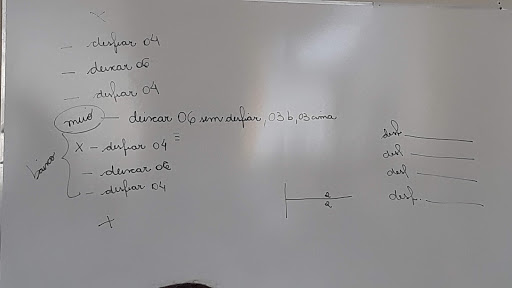 x
- desfiar 04
- deixar 06
- desfiar 04
meio - deixar 06 sem desfiar, 03 b, 03 cima
baixo
x - desfiar 04 =
- deixar 06
- desfiar 04
x
desf ____
desf ____
desf ____
desf. ____
2
2